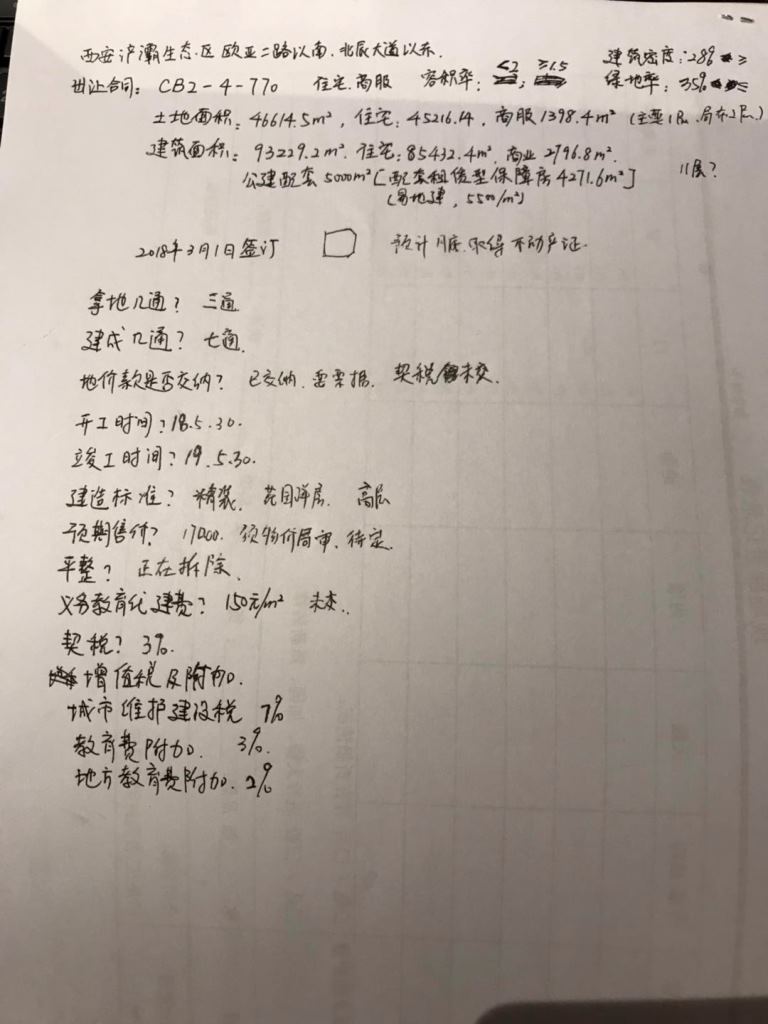 西安浐灞生态区欧亚二路以南、北辰大道以东.
建筑密度:28%
出让合同: CB2-4-770 住宅.商服 容积率: <2 ≥1.5 绿地率: 35%
土地面积: 46614.5m², 住宅: 45216.14, 商服1398.4m² (主要1层.局部2层)
建筑面积: 93229.2m². 住宅:85432.4m². 商业2796.8m².
公建配套5000m² [配套租赁型保障房4271.6m²] 11层?
(易地建, 5500/m²)
2018年3月1日签订 预计月底.取得不动产证.
拿地几通? 三通
建成几通? 七通.
地价款是否交纳? 已交纳. 要票据. 契税未交.
开工时间? 18.5.30.
竣工时间? 19.5.30.
建造标准? 精装. 花园洋房. 高层
预期售价? 17000. 须物价局审、待定.
平整? 正在拆除.
义务教育代建费? 150元/m² 未交.
契税? 3%.
增值税及附加.
城市维护建设税 7%
教育费附加. 3%.
地方教育费附加. 2%